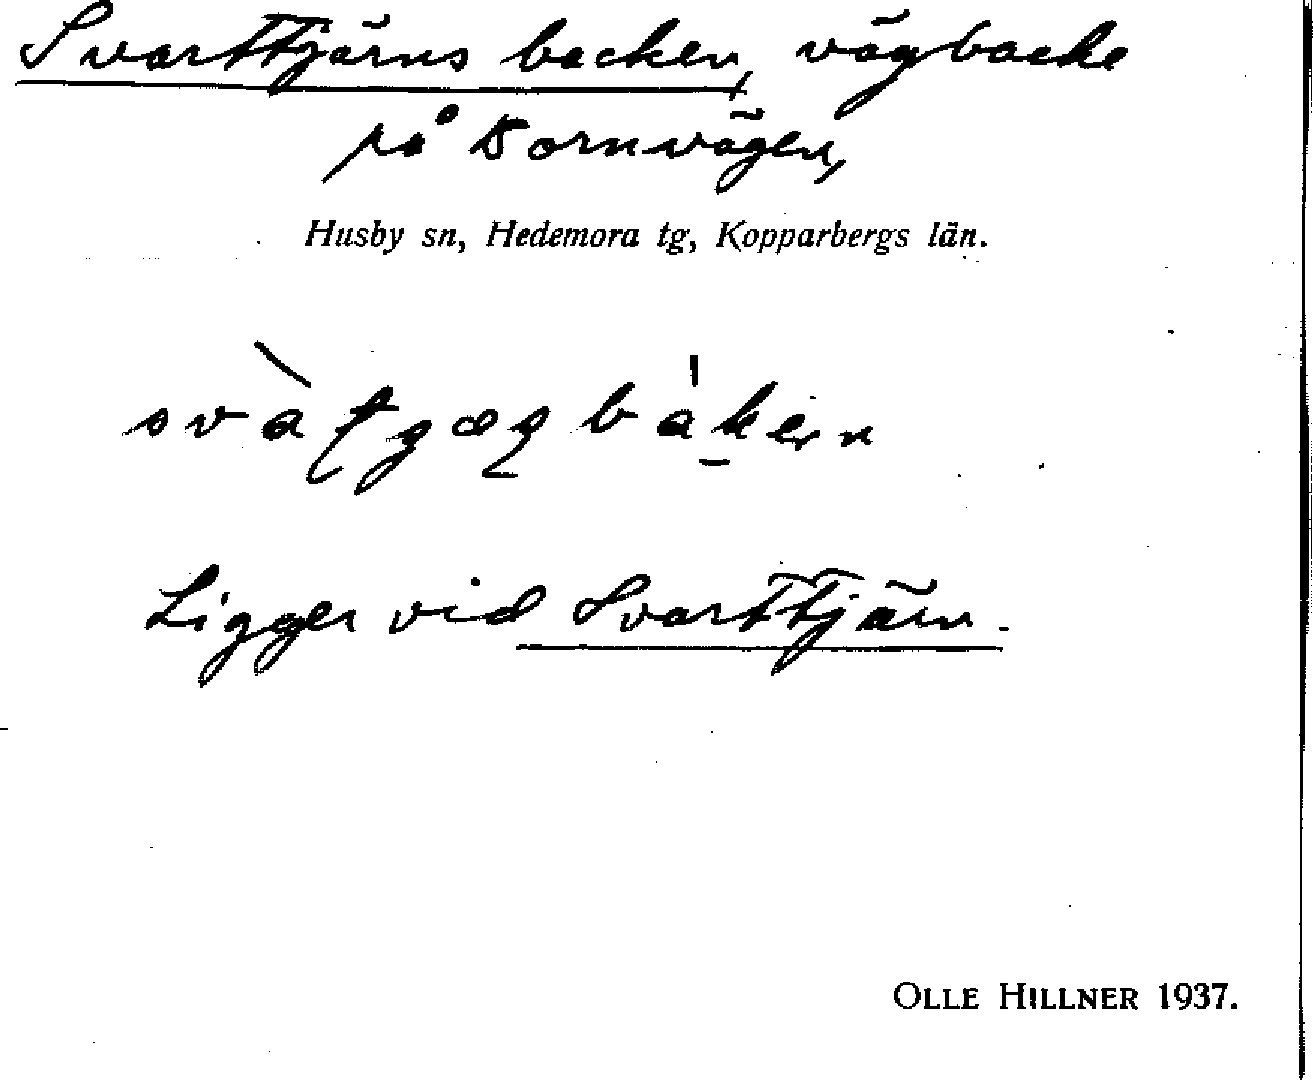 Svarttjärns backen, vägbacke
på Kornvägen,
Husby sn, Hedemora tg, Kopparbergs län.
Ligger vid Svarttjärn.
OLLE HILLNER 1937.